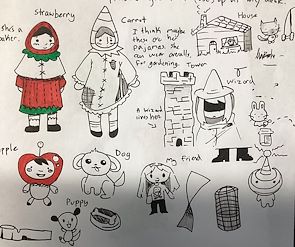 strawberry
Carrot
I think maybe
these are her
Pajamas. She
can wear overalls,
for gardening.
House
she's a
baker.
Tower
Wizard
A wizard
lives here
apple
Dog
My Friend
Puppy